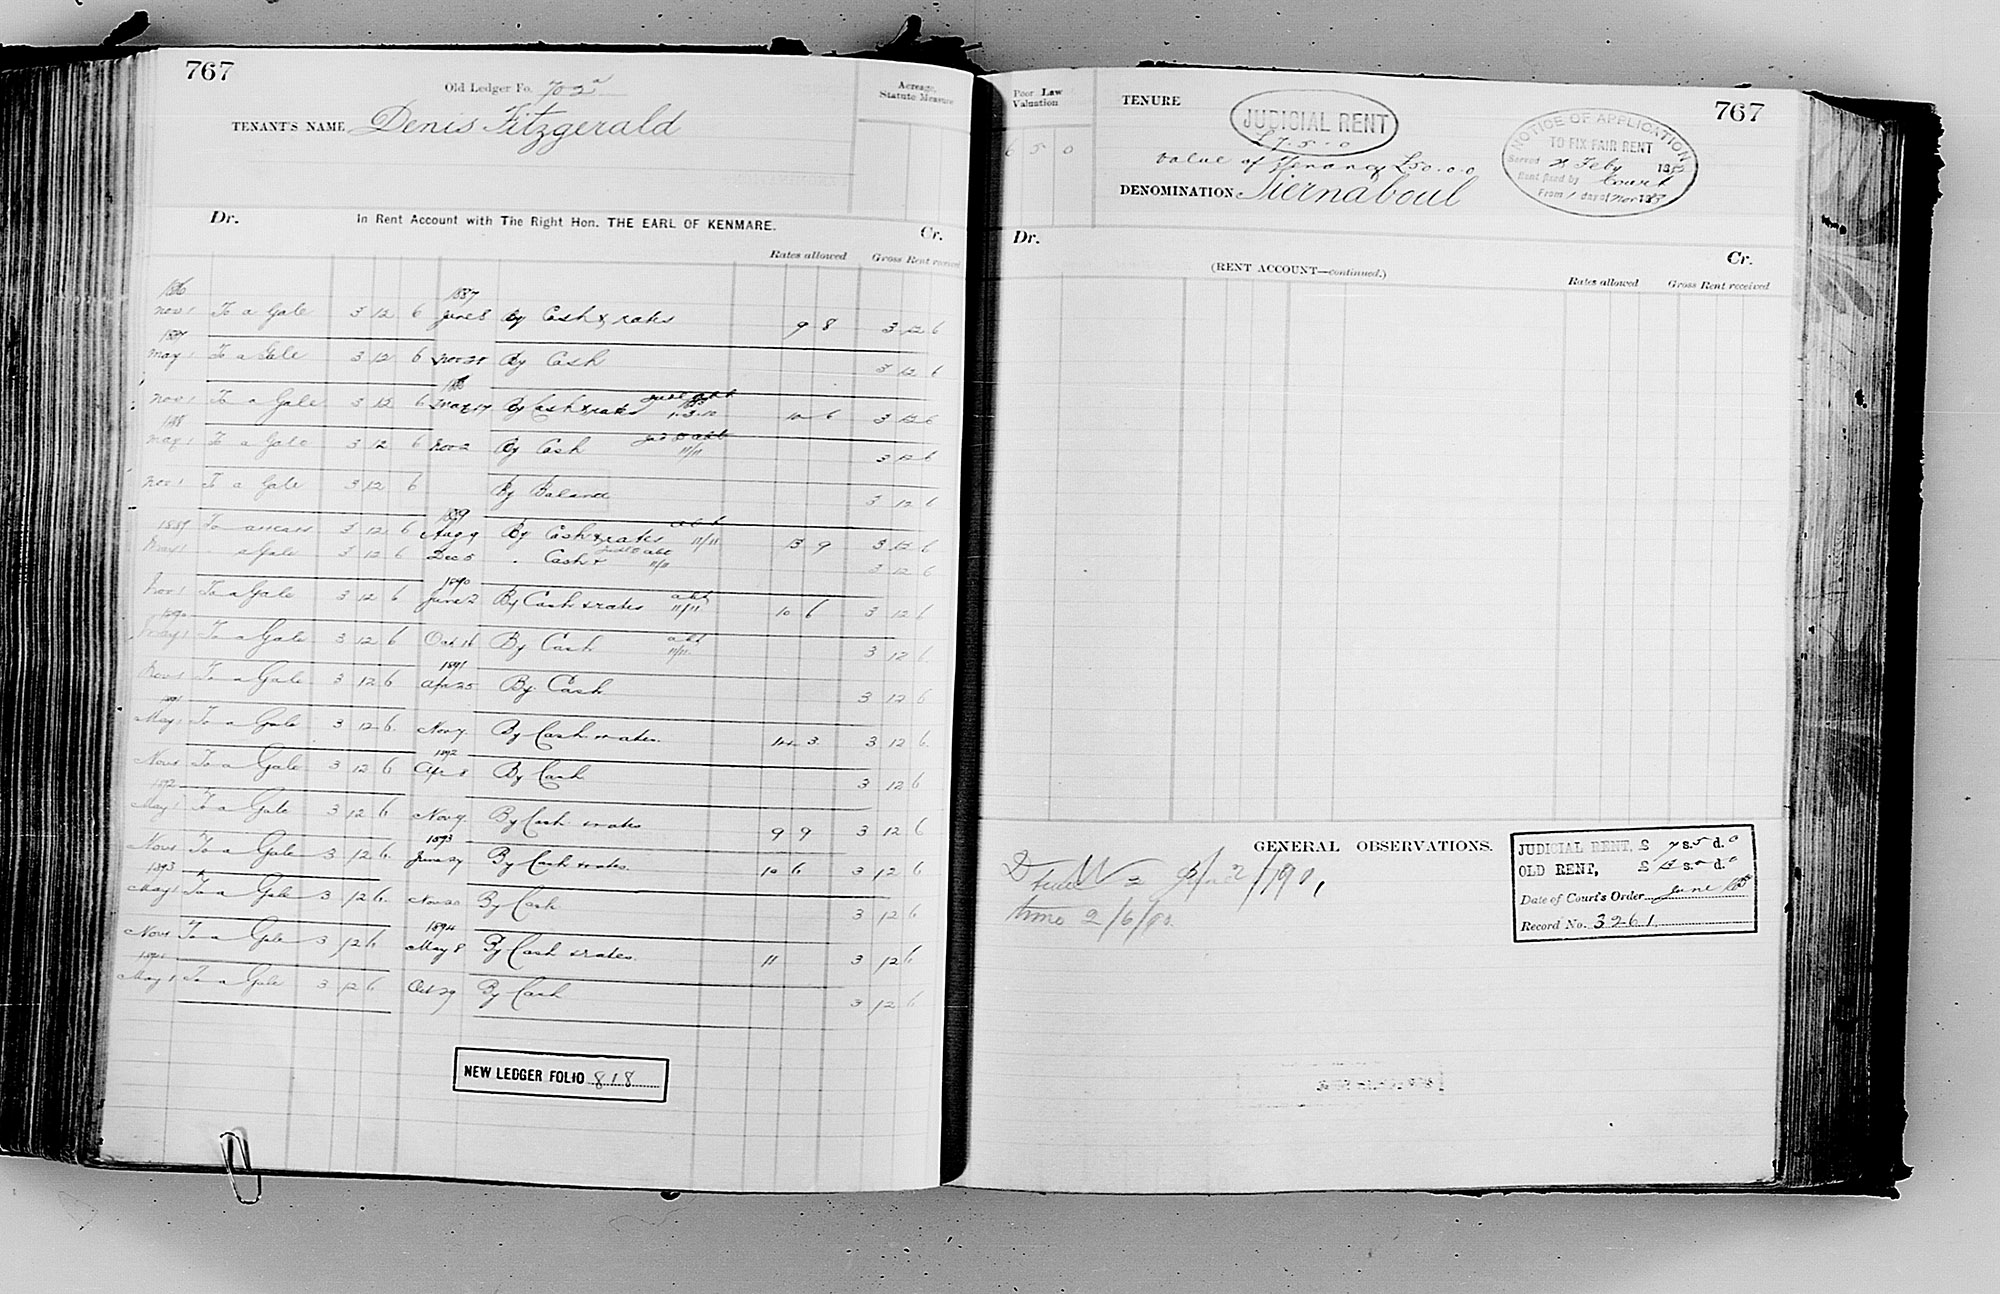 767
Old Ledger Fo. 702a
TENANT'S NAME Denis Fitzgerald
Acreage, Statute Measure
Dr. In Rent Account with The Right Hon. THE EARL OF KENMARE. Cr.
Rates allowed Gross Rent received
1886 1887
Nov 1 To a Gale 3 12 6 June 8 By Cash & rates 9 8 3 12 6
1887
May 1 To a Gale 3 12 6 Nov 28 By Cash 3 12 6
1888
Nov 1 To a Gale 3 12 6 May 17 By Cash & rates 1.3.10 10 6 3 12 6
1888
May 1 To a Gale 3 12 6 Nov 2 By Cash abt 11/11 3 12 6
Nov 1 To a Gale 3 12 6 By Balance 3 12 6
1889
To arrears 3 12 6 Aug 9 By Cash & rates abt 11/11 13 9 3 12 6
1889
May 1 a Gale 3 12 6 Dec 5 Cash & abt 11/11 3 12 6
1890
Nov 1 To a Gale 3 12 6 June 2 By Cash & rates abt 11/11 10 6 3 12 6
1890
May 1 To a Gale 3 12 6 Oct 16 By Cash abt 11/11 3 12 6
1891
Nov 1 To a Gale 3 12 6 Apr 25 By Cash 3 12 6
1891
May 1 To a Gale 3 12 6 Nov 7 By Cash & rates 14 3 3 12 6
1892
Nov 1 To a Gale 3 12 6 Apr 8 By Cash 3 12 6
1892
May 1 To a Gale 3 12 6 Nov 7 By Cash & rates 9 9 3 12 6
1893
Nov 1 To a Gale 3 12 6 June 27 By Cash & rates 10 6 3 12 6
1893
May 1 To a Gale 3 12 6 Nov 20 By Cash 3 12 6
1894
Nov 1 To a Gale 3 12 6 May 8 By Cash & rates 11 3 12 6
1894
May 1 To a Gale 3 12 6 Oct 29 By Cash 3 12 6
NEW LEDGER FOLIO 818
Poor Law Valuation
6 5 0
TENURE
JUDICIAL RENT
£7.5.0
Value of Tenancy £50.0.0
DENOMINATION Tiernaboul
NOTICE OF APPLICATION
TO FIX FAIR RENT
Served Feby 188
Rent fixed by Court
From 1 day of Nov 188
767
Dr. Cr.
(RENT ACCOUNT—continued.)
Rates allowed Gross Rent received
GENERAL OBSERVATIONS.
time 2/6/90
JUDICIAL RENT, £ 7 s. 5 d. 0
OLD RENT, £ s. d.
Date of Court's Order June
Record No. 3261